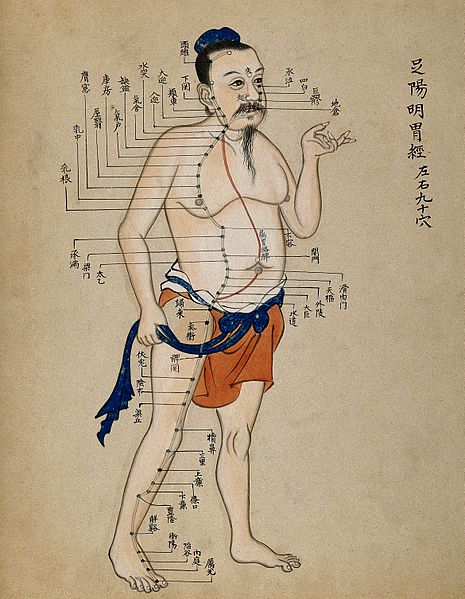 足陽明胃經
左右九十穴
頭維
下関
頰車
承泣
四白
巨髎
地倉
大迎
人迎
水突
氣舍
缺盆
氣户
庫房
屋翳
膺窓
乳中
乳根
承滿
梁门
太乙
関門
滑肉门
天樞
外陵
大巨
水道
歸来
氣衝
髀関
伏兎
陰市
梁丘
犢鼻
三里
上廉
條口
下廉
豊隆
解谿
衝陽
陷谷
内庭
厲兌